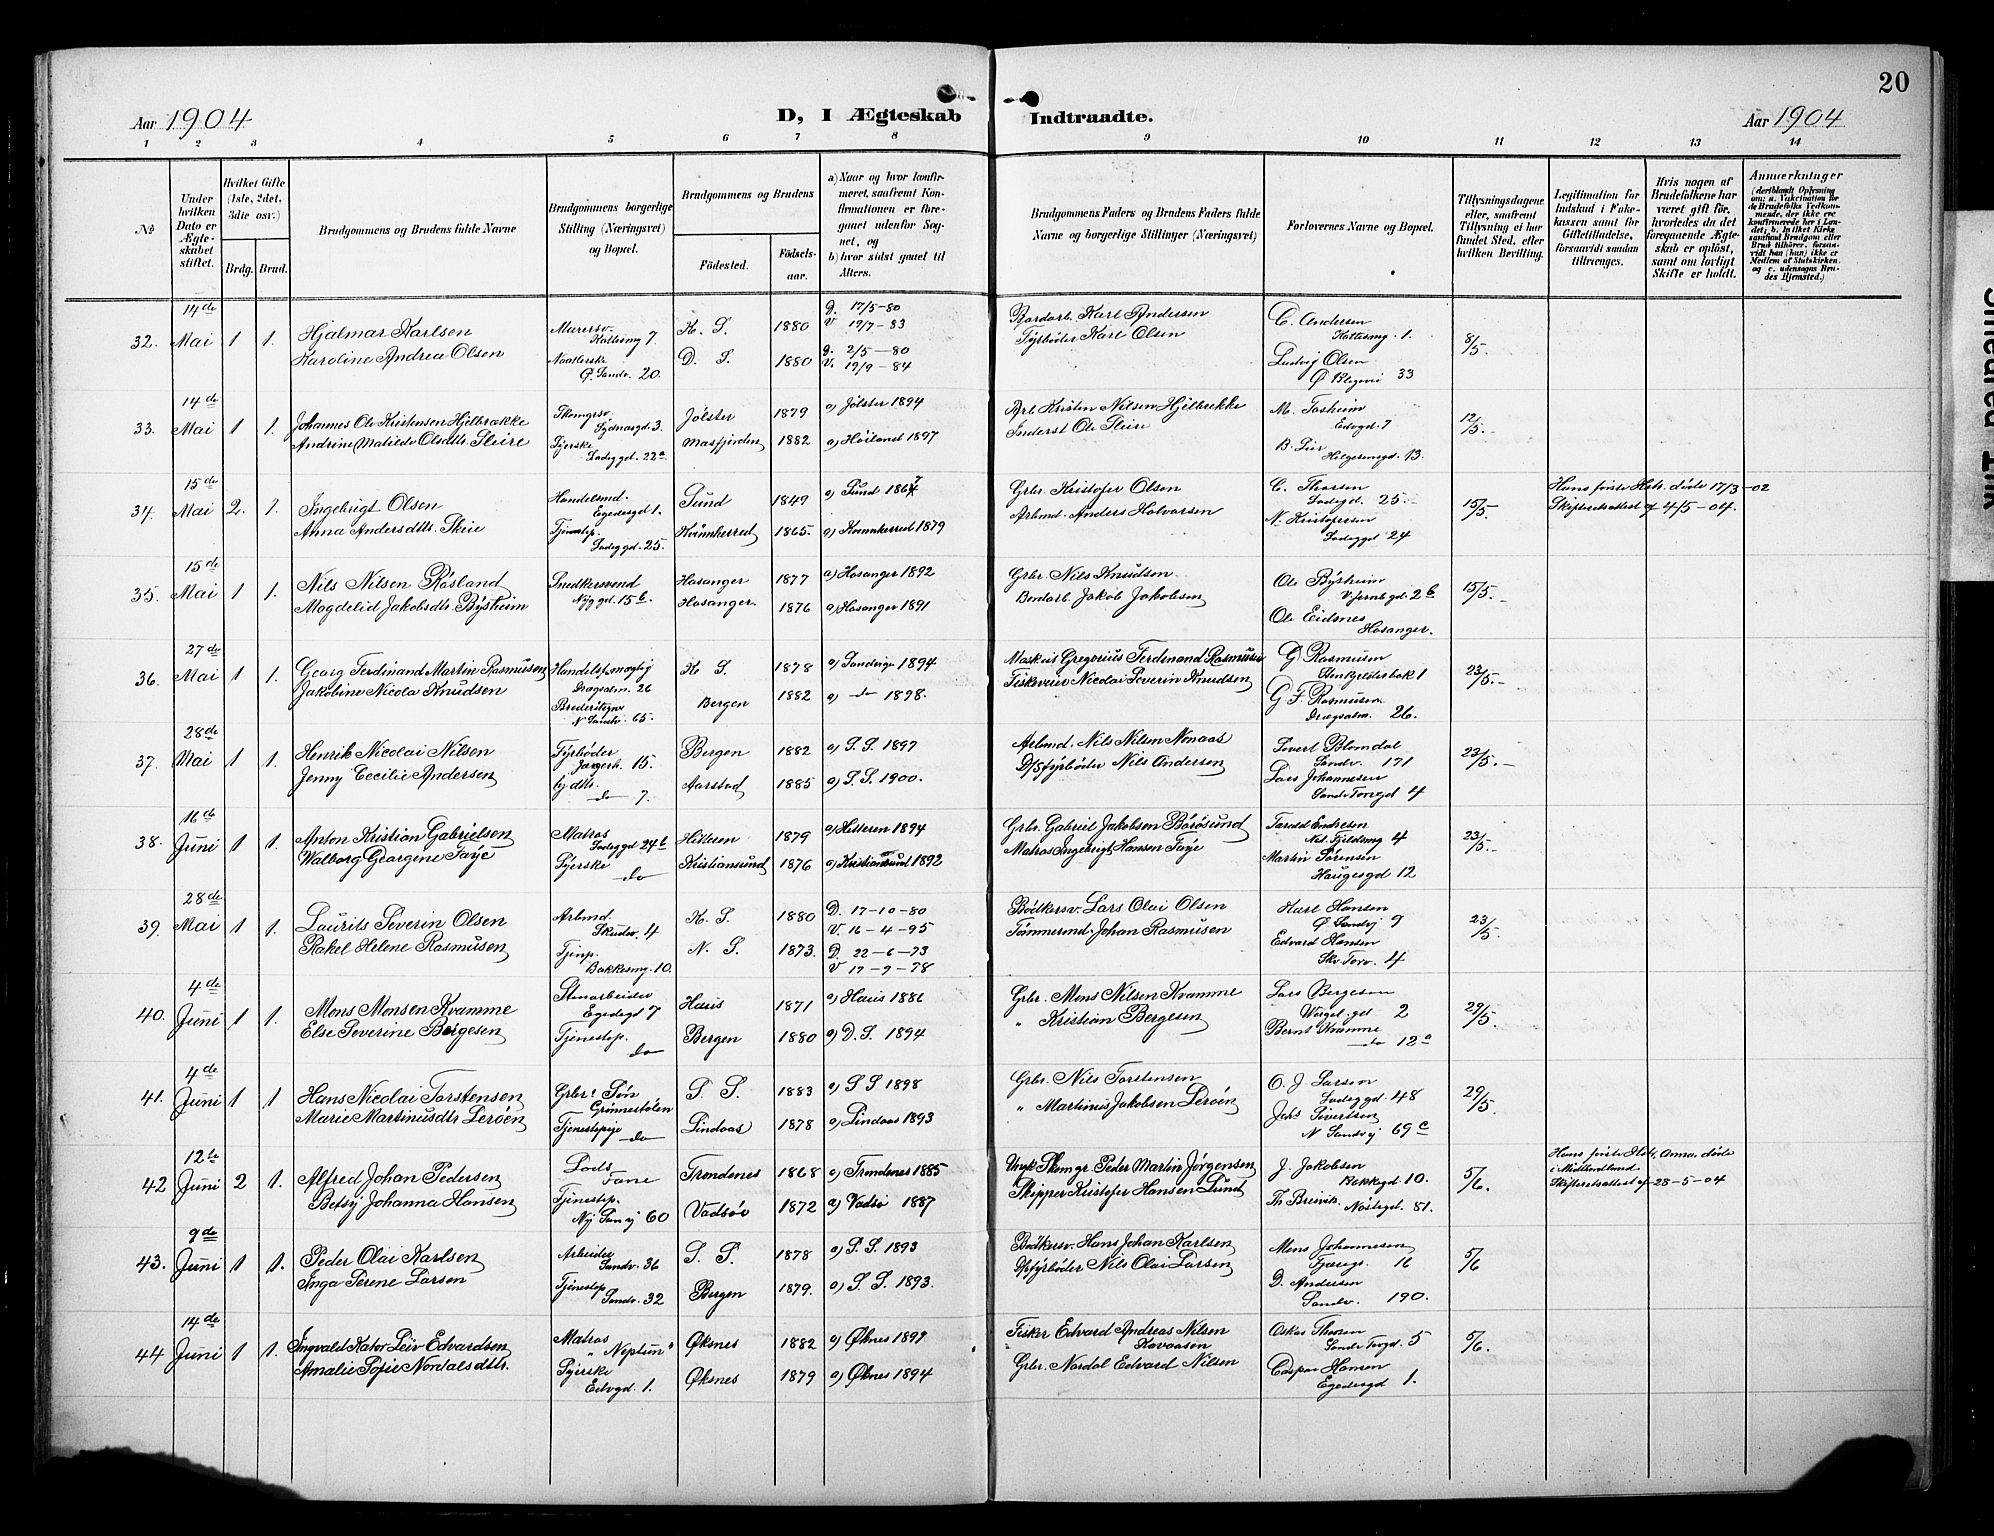 20
Aar 1904
D, I Ægteskab Indtraadte.
Aar 1904
1 2 3 4 5 6 7 8 9 10 11 12 13 14
No
Under hvilken Dato er Ægteskabet stiftet.
Hvilket Gifte (1ste, 2det, 3die osv.)
Brdg. Brud.
Brudgommens og Brudens fulde Navne
Brudgommens borgerlige Stilling (Næringsvei) og Bopæl.
Brudgommens og Brudens
Fødested.
Fødselsaar.
a) Naar og hvor konfirmeret, saafremt Konfirmationen er foregaaet udenfor Sognet, og
b) hvor sidst gaaet til Alters.
Brudgommens Faders og Brudens Faders fulde Navne og borgerlige Stillinger (Næringsvei)
Forlovernes Navne og Bopæl.
Tillysningsdagene eller, saafremt Tillysning ei har fundet Sted, efter hvilken Bevilling.
Legitimation for Indskud i Enkekassen samt for Giftetilladelse, forsaavidt saadan tiltrænges.
Hvis nogen af Brudefolkene har været gift før, hvorledes da det foregaaende Ægteskab er opløst, samt om lovligt Skifte er holdt.
Anmærkninger
32. 14de Mai 1 1. Hjalmar Karlsen
Karoline Andrea Olsen
Murersv. 7
K. S. 1880 D. 17/5-80
V 19/7-83
Ø. Sandv. 20. D. S. 1880 D. 2/5-80
V. 19/9-84
Bordarb. Karl Andersen
Fyrbøder Karl Olsen
C. Andersen 1.
Ludvig Olsen
Ø Blegevei 33
8/5.
33. 14de Mai 1 1. Johannes Ole Kristensen Hjelbrække
Andrine Matilde Olsdtr. Sleire
Skomgrsv. Sydnæsgd. 3. Jølster 1879 a) Jølster 1894
Syerske Ladeggd. 22a Masfjorden 1882 a) 1897
Arb. Kristen Nilsen Hjelbrekke
Inderst Ole Sleire
M. Tosheim
Edvgd. 7
B. 13.
12/5.
34. 15de Mai 2. 1. Ingebrigt Olsen
Anna Andersdtr. Skeie
Handelsmd. Egedesgd 1. Sund 1849 a) Sund 1867
Tjenestep. Ladeggd. 25. Kvinnherred 1865. a) Kvinnherred 1879
Grbr. Kristofer Olsen
Arbmd. Anders Halvorsen
C. Thorsen
Ladegd. 25.
N. Kristofersen
Ladeggd 24
15/5.
Hans første Hstr. døde 17/3-02
Skifteretsattest af 4/5-04.
35. 15de Mai 1 1. Nils Nilsen Røsland
Magdelid Jakobsdtr. Bysheim
Snedkersvend Nyggd. 15b. Hosanger 1877 a) Hosanger 1892
Hosanger. 1876 a) Hosanger 1891
Grbr. Nils Knudsen
Bordarb. Jakob Jakobsen
Ole Bysheim
V. Jernbgd. 2b
Ole Eidsnes
Hosanger.
15/5.
36. 27de Mai 1 1. Georg Ferdinand Martin Rasmusen
Jakobine Nicola Knudsen
Handelsfmægtig Dragesalm. 26 K S. 1878 a) Sandvigs 1894
N Sandv. 65. Bergen 1882 a) do 1898.
Maskist Gregorius Ferdinand Rasmusen
Fiskeveier Nicolai Severin Knudsen
G Rasmusen 1
G F. Rasmusen
Dragesalm. 26.
23/5.
37. 28de Mai 1 1. Henrik Nicolai Nilsen
Jenny Cecilie Andersen
Fyrbøder 15. Bergen 1882 a) S. S. 1897
do 7. Aarstad 1885 a) S. S. 1900.
Arbmd. Nils Nilsen Monaas
D/Sfyrbøder Nils Andersen
Sivert Blomdal
Sandv. 171
Lars Johannesen
Sandv Torvgd 4
23/5.
38. 16de Juni 1 1. Anton Kristian Gabrielsen
Walborg Georgene Faye
Matros Ladeggd 24b Hitteren 1879 a) Hitteren 1894
Syerske do Kristiansund 1876 a) Kristiansund 1892
Grbr. Gabriel Jakobsen Børøsund
Matros Ingebrigt Hansen Faye
Tarald Endresen 4
Martin Sørensen
Haugesgd 12
23/5.
39. 28de Mai 1 1. Laurits Severin Olsen
Rakel Helene Rasmusen
Arbmd. Skudev. 4 K. S. 1880 D. 17-10-80
V. 16-4-95
Tjenp. Bakkesmg. 10. N. S. 1873. D. 22-6-73
V 17-9-78
Bødkersv. Lars Olai Olsen
Tømmermd. Johan Rasmusen
Karl Hansen
Ø Sandvj 9
Edvard Hansen
Skv Torv. 4
23/5.
40. 4de Juni 1 1. Mons Monsen Kvamme
Else Severine Bergesen
Stenarbeider Egedesgd 7 Haus 1871 a) Haus 1886
Tjenestep. do Bergen 1880 a) D. S. 1894
Grbr. Mons Nilsen Kvamme
" Kristian Bergesen
Lars Bergesen 2
Bernt Kvamme
do 12a
29/5.
41. 4de Juni 1 1 Hans Nicolai Torstensen
Marie Martinusdtr Lerøen
Grbr. Søn Grønnestølen S. S. 1883 a) S S 1898
Tjenestepige do Lindaas 1878 a) Lindaas 1893
Grbr. Nils Torstensen
" Martinus Jakobsen Lerøen
O. J Larsen
Ladeggd. 48
Johs Sivertsen
N Sandvj 69c
29/5.
42 12te Juni 2 1. Alfred Johan Pedersen
Betsy Johanna Hansen
Lods Fane Trondenes 1868 a) Trondenes 1885
Tjenestep. Ny Sanvj 60 Vadsø 1872 a) Vadsø 1887
Skomgr. Peder Martin Jørgensen
Skipper Kristofer Hansen Lund
J. Jakobsen
Bakkgd 10.
Th Breivik
Nøstegd. 81.
5/6.
Hans første Hstr. Anna, døde
i Midlandlund
Skifteretsattest af 28-5-04
43. 9de Juni 1 1. Peder Olai Karlsen
Inga Serene Larsen
Arbeider Sandv. 36 S. S. 1878 a) S. S. 1893
Tjenestep Sandv. 32 Bergen 1879. a) S. S. 1893.
Bødkersv. Hans Johan Karlsen
D/sfyrbøder Nils Olai Larsen
Mons Johannesen 16
D. Andersen
Sandv. 190.
5/6
44 14de Juni 1 1. Ingvald Kator Leiv Edvardsen
Amalie Sofie Nordalsdtr.
Matros "Neptun" Øksnes 1882 a) Øksnes 1899
Syerske Edvgd. 1. Øksnes 1879 a) Øksnes 1894
Fisker Edvard Andreas Nilsen
Kavaasen
Grbr. Nordal Edvard Nilsen
Oskar Thorsen
Sandv Torgd. 5
Caspar Hansen
Egedesgd 1.
5/6.